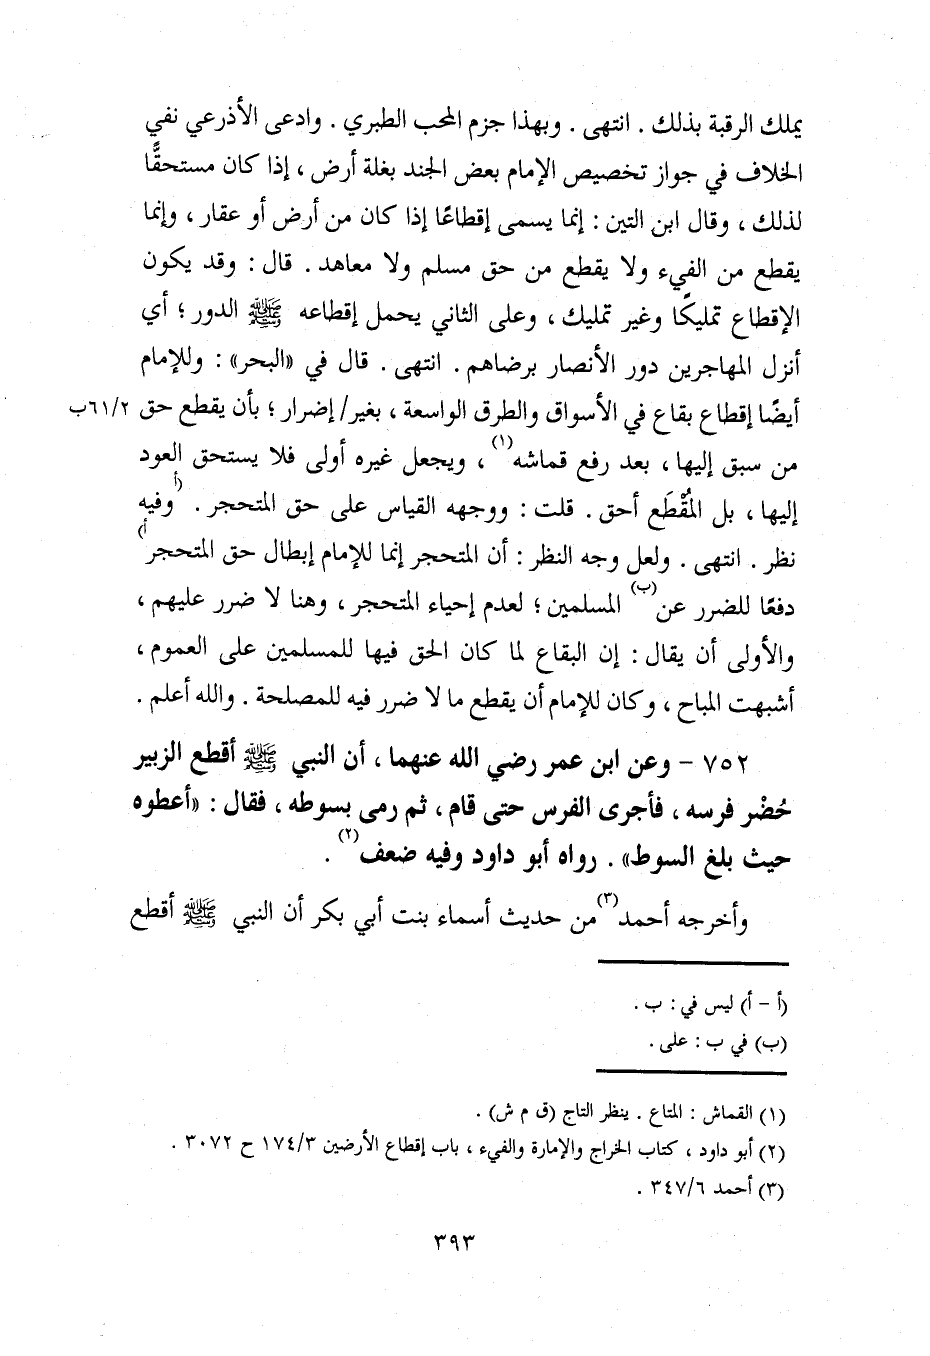 يملك الرقبة بذلك . انتهى . وبهذا جزم المحب الطبري . وادعى الأذرعي نفي
الخلاف في جواز تخصيص الإمام بعض الجند بغلة أرض ، إذا كان مستحقًّا
لذلك ، وقال ابن التين : إنما يسمى إقطاعًا إذا كان من أرض أو عقار ، وإنما
يقطع من الفيء ولا يقطع من حق مسلم ولا معاهد . قال : وقد يكون
الإقطاع تمليكًا وغير تمليك ، وعلى الثاني يحمل إقطاعه ﷺ الدور ؛ أي
أنزل المهاجرين دور الأنصار برضاهم . انتهى . قال في «البحر» : وللإمام
أيضًا إقطاع بقاع في الأسواق والطرق الواسعة ، بغير/ إضرار ؛ بأن يقطع حق ٦١/٢ب
من سبق إليها ، بعد رفع قماشه(١) ، ويجعل غيره أولى فلا يستحق العود
إليها ، بل المُقْطَع أحق . قلت : ووجهه القياس على حق المتحجر . (أوفيه
نظر . انتهى . ولعل وجه النظر : أن المتحجر إنما للإمام إبطال حق المتحجرأ)
دفعًا للضرر عن(ب) المسلمين ؛ لعدم إحياء المتحجر ، وهنا لا ضرر عليهم ،
والأولى أن يقال : إن البقاع لما كان الحق فيها للمسلمين على العموم ،
أشبهت المباح ، وكان للإمام أن يقطع ما لا ضرر فيه للمصلحة . والله أعلم .
٧٥٢ - وعن ابن عمر رضي الله عنهما ، أن النبي ﷺ أقطع الزبير
حُضْر فرسه ، فأجرى الفرس حتى قام ، ثم رمى بسوطه ، فقال : «أعطوه
حيث بلغ السوط» . رواه أبو داود وفيه ضعف(٢) .
وأخرجه أحمد(٣) من حديث أسماء بنت أبي بكر أن النبي ﷺ أقطع
(أ - أ) ليس في : ب .
(ب) في ب : على .
(١) القماش : المتاع . ينظر التاج (ق م ش) .
(٢) أبو داود ، كتاب الخراج والإمارة والفيء ، باب إقطاع الأرضين ١٧٤/٣ ح ٣٠٧٢ .
(٣) أحمد ٣٤٧/٦ .
٣٩٣